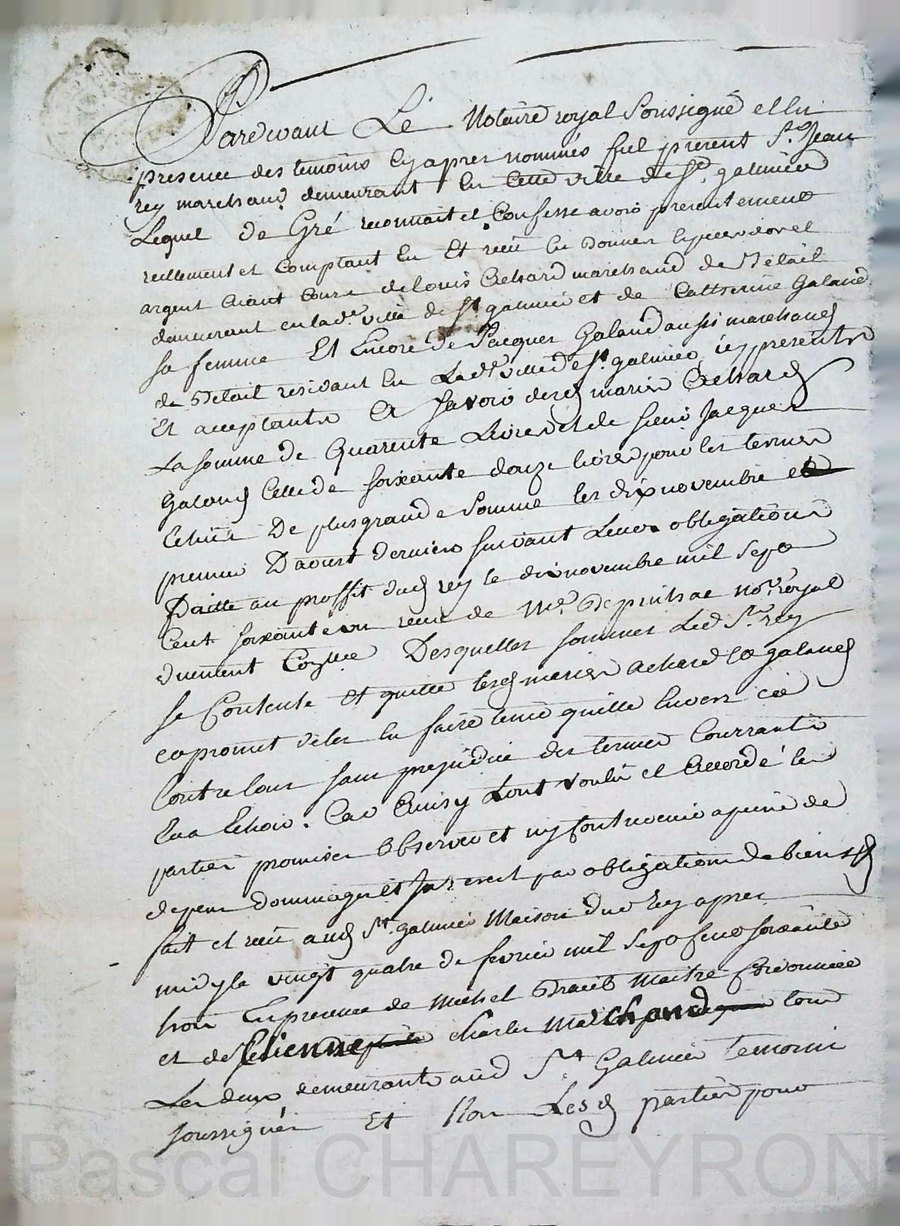 Pardevant Le Notaire royal Soussigné et En
presence des temoins Cy apres nommés fut present Sr. Jean
rey marchand demeurant En Cette ville de St. galmier
Lequel de Gré reconnait et Confesse avoir presentement
reellement et Comptant Eu Et recu En donner
argent aiant Cours de Louis Achard marchand de Détail
demeurant en lade. ville de St galmier et de Catherine Galand
sa femme Et Encore de Jacques Galand aussi marchand
de Détail residant En Lade ville de St. galmier icy presents
Et acceptants A Savoir desd mariés Achard
La somme de Quarente Livres et de Jacques
Galand Celle de soixante douze livres pour les termes
Echus De plus grande Somme les dix novembre et
premier Daoust dernier suivant Leurs obligations
Faitte au proffit dud rey le dix novembre mil sept
Cent soixante un recue de Me. Depinhac nore. royal
duement Cogneu Desquelles sommes Led Sr. rey
se Contente Et quitte lesd mariés achard et galand
promet les En faire tenir quitte Envers et
Contre tous sans prejudice des termes Courrants
Et a Echoir. Car Ainsy L'ont voulu et accordé les
parties promis observer et ny Contrevenir a peine de
depens dommages et Interest par obligation de biens
fait et recu aud St. galmier Maison dud rey apres
midy le vingt quatre de fevrier mil sept Cent soixante
trois En presence de Michel Maitre Cordonnier
et de Etienne Charles Marchand tous
Les deux demeurants aud St Galmier temoins
soussignés Et Non Lesd parties pour
Pascal CHAREYRON